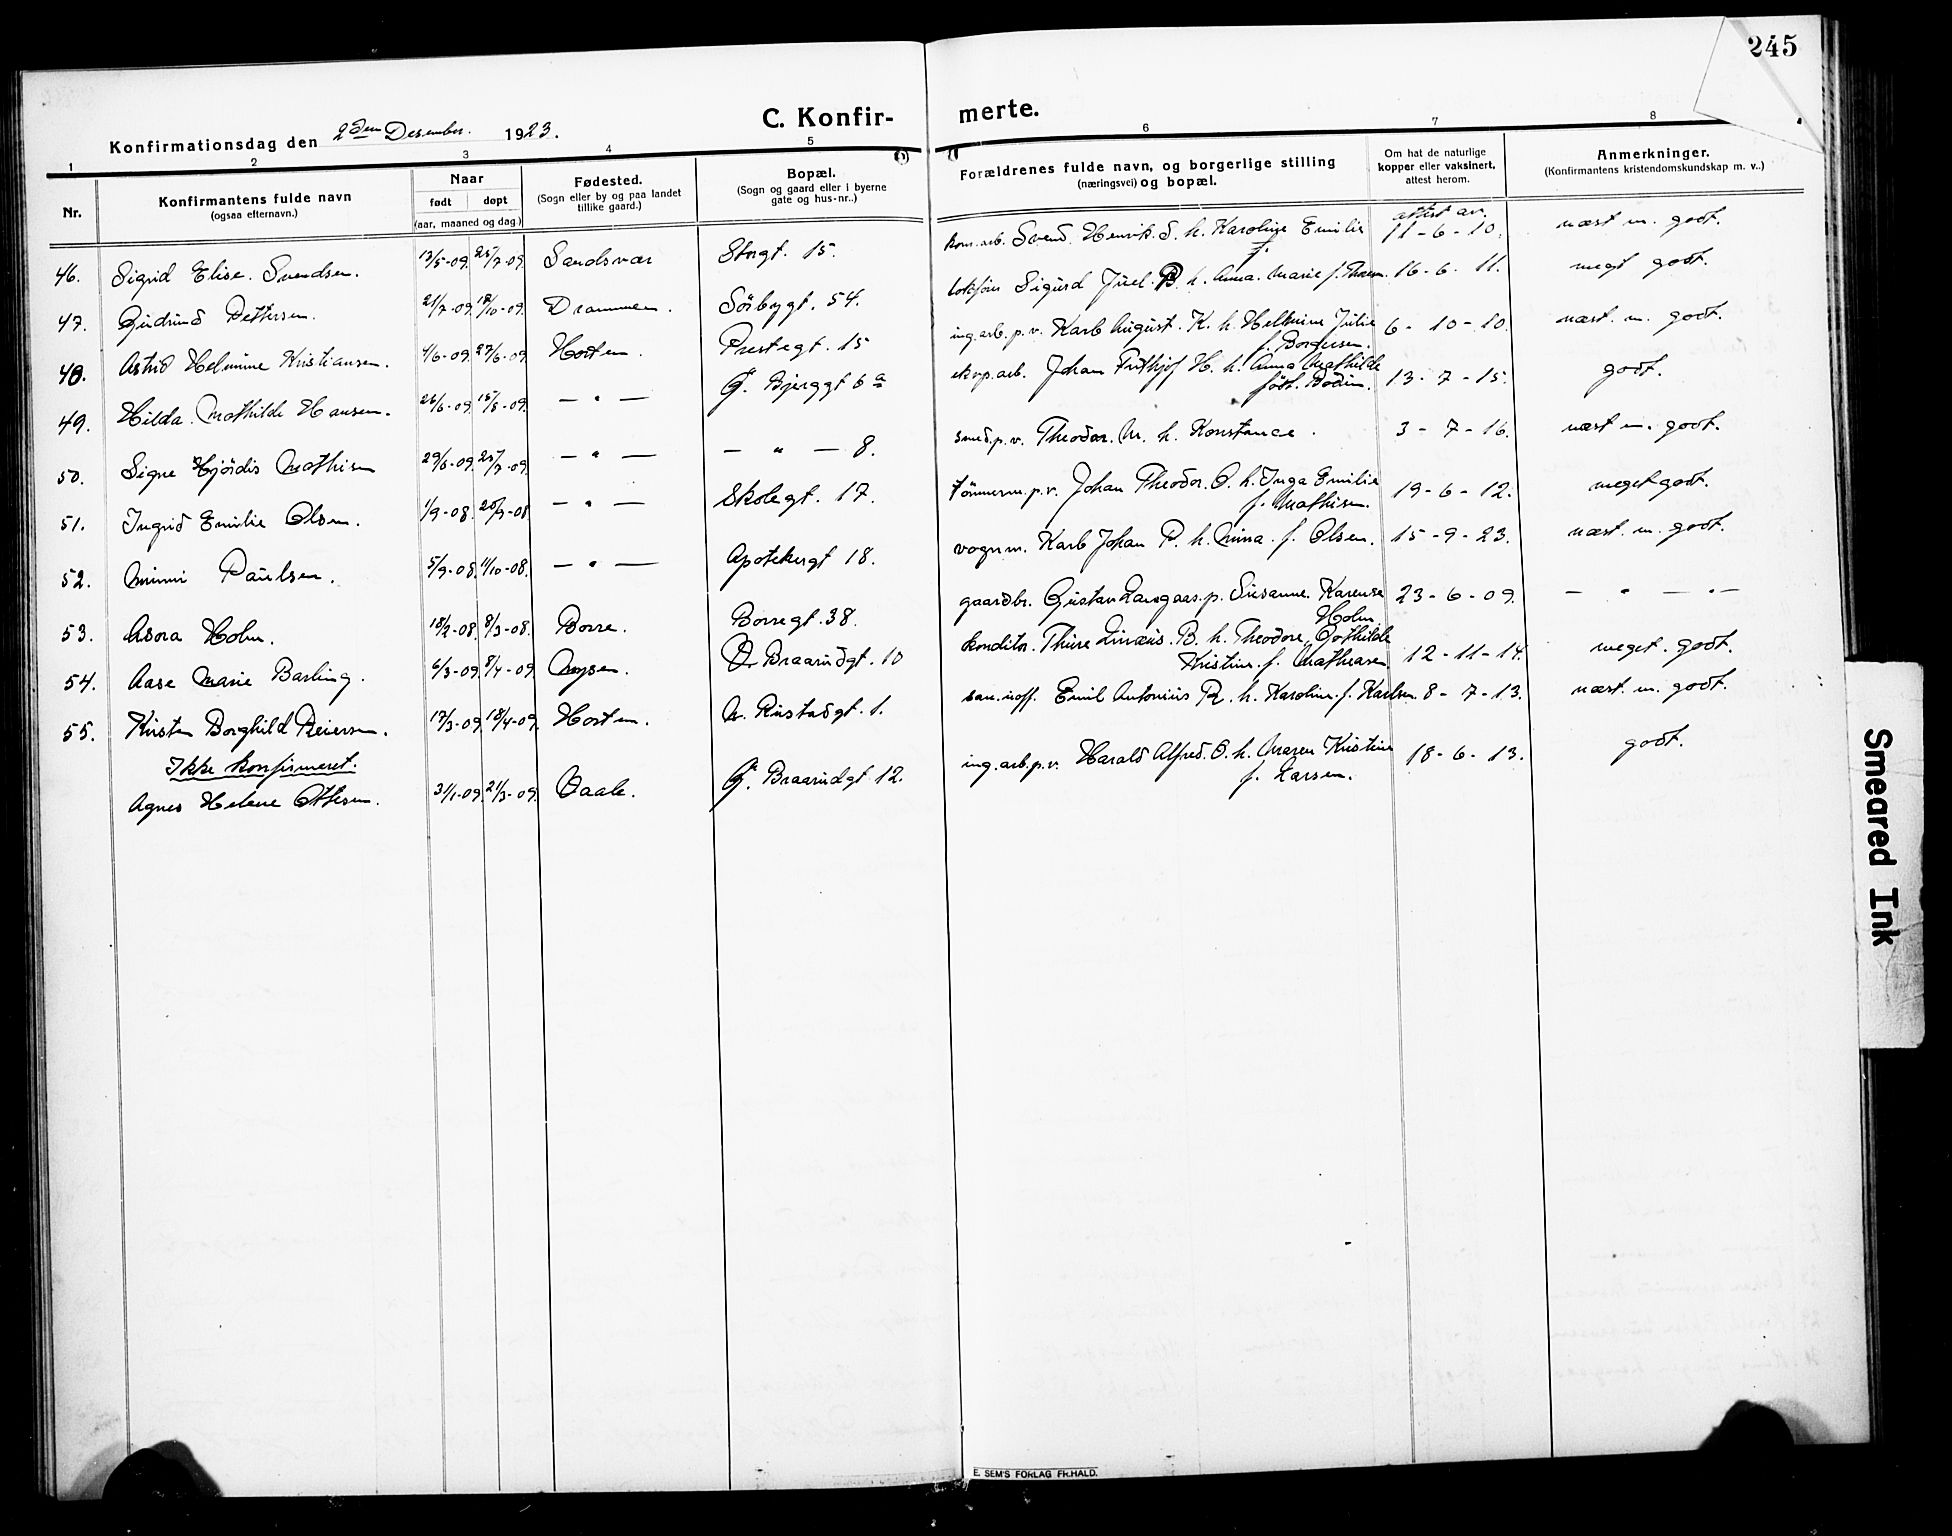 245
C. Konfir- merte.
Konfirmationsdag den 2den Desember. 1923.
1 2 3 4 5 6 7 8
Nr.
Konfirmantens fulde navn
(ogsaa efternavn.)
Naar
født døpt
(aar, maaned og dag.)
Fødested.
(Sogn eller by og paa landet
tillike gaard.)
Bopæl.
(Sogn og gaard eller i byerne
gate og hus-nr..)
Forældrenes fulde navn, og borgerlige stilling
(næringsvei) og bopæl.
Om hat de naturlige
kopper eller vaksinert,
attest herom.
Anmerkninger.
(Konfirmantens kristendomskundskap m. v..)
attest av.
46. Sigrid Elise. Svendsen. 13/5-09. 25/7-09 Sandsvær Storgt. 15. kom.arb. Svend. Henrik. S. h. Karoline Emilie f. 11-6-10. næst m. godt.
47. Gudrund Pettersen. 21/7-09. 18/10-09. Drammen. Sörbygt. 54. lokförer Sigurd Juel. P. h. Anna. Marie f. 16-6-11. megt godt.
48. Astrid Helmine Kristiansen. 4/6-09. 27/6-09. Horten. Prestegt. 15 ing.arb. p. v. Karl August. K. h. Helmine Julie 6-10-10. næst. m. godt.
f. Borgersen.
49. Hilda. Mathilde Hansen. 26/6-09. 15/8-09. — " — G. Bjerggt 6 a ekvp.arb. Johan Frithjof H. h. Anna Mathilde 13-7-15. godt.
födt. Bodin.
50. Signe Hjördis Mathisen 29/6-09. 25/7-09. — " — — " — 8. smed.p.v. Theodor. M. h. Konstance. 3-7-16. næst m. godt.
51. Ingrid Emilie Olsen. 1/9-08. 20/9-08 — " — Skolegt. 17. tömmerm.p.v. Johan Theodor. O. h. Inga Emilie 19-6-12. meget godt.
f. Mathisen.
52. Mimmi Paulsen. 5/9-08. 11/10-08. — " — Apotekergt 18. vognm. Karl Johan P. h. Mina. f. Olsen. 15-9-23. næst. m. godt.
53. Asora Holm. 18/2-08. 8/3-08. Borre. Borregt. 38. gaardbr. Gustav Langaas. p. Susanne. Karense 23-6-09. — " — " —
Holm.
54. Aase Marie Barling. 6/3-09. 8/4-09. Mysen. Braarudgt. 10 konditor. Thure Linæus. B. h. Theodore, Bothilde 12-11-14. meget. godt.
Kristine f. Matheasen
55. Kirsten Borghild Reiersen. 17/3-09. 18/4-09. Horten. N. Rustadgt. 1. san.uoff. Emil Antonius R. h. Karoline. f. Karlsen. 8-7-13. næst. m. godt.
Ikke konfirmeret.
Agnes Helene Ottesen. 31/1-09. 21/3-09. Vaale. G. Braarudgt 12. ing.arb.p.v. Harald Alfred. O. h. Maren Kristine 18-6-13. godt.
f. Larsen.
E. SEM'S FORLAG FR.HALD.
Smeared Ink